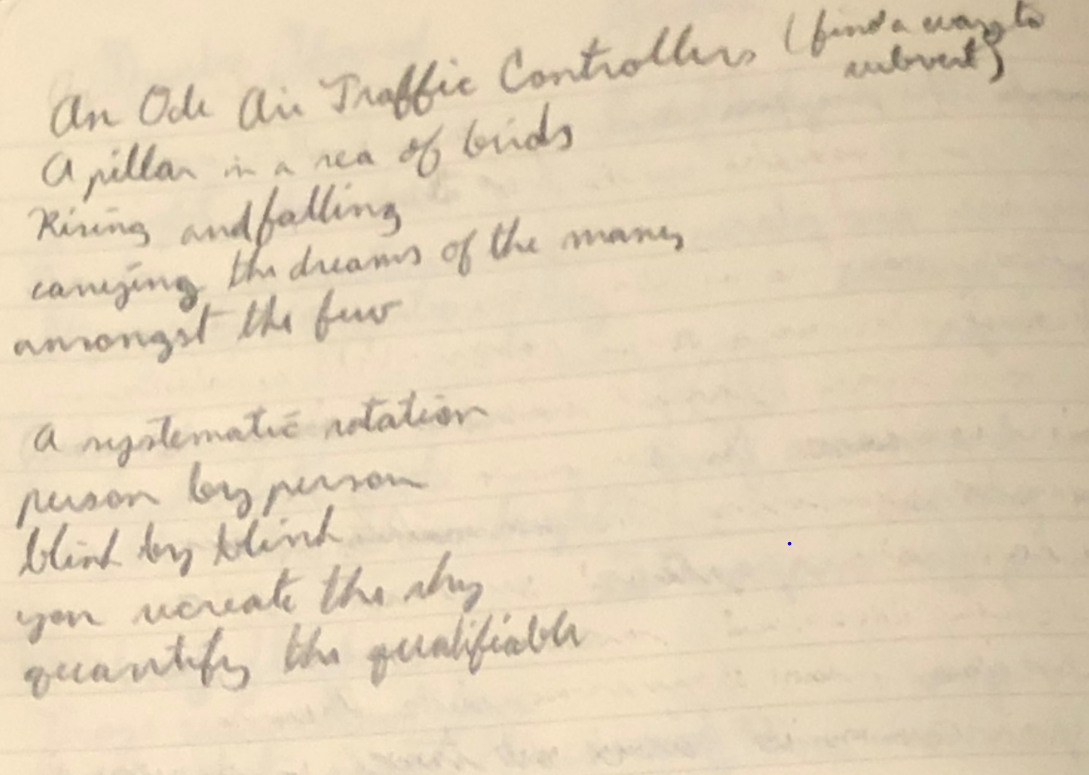 An Ode Air Traffic Controllers (find a way to
subvert)
A pillar in a sea of birds
Rising and falling
carrying the dreams of the many
amongst the few
A systematic rotation
person by person
blink by blink
you recreate the sky
quantify the qualifiable